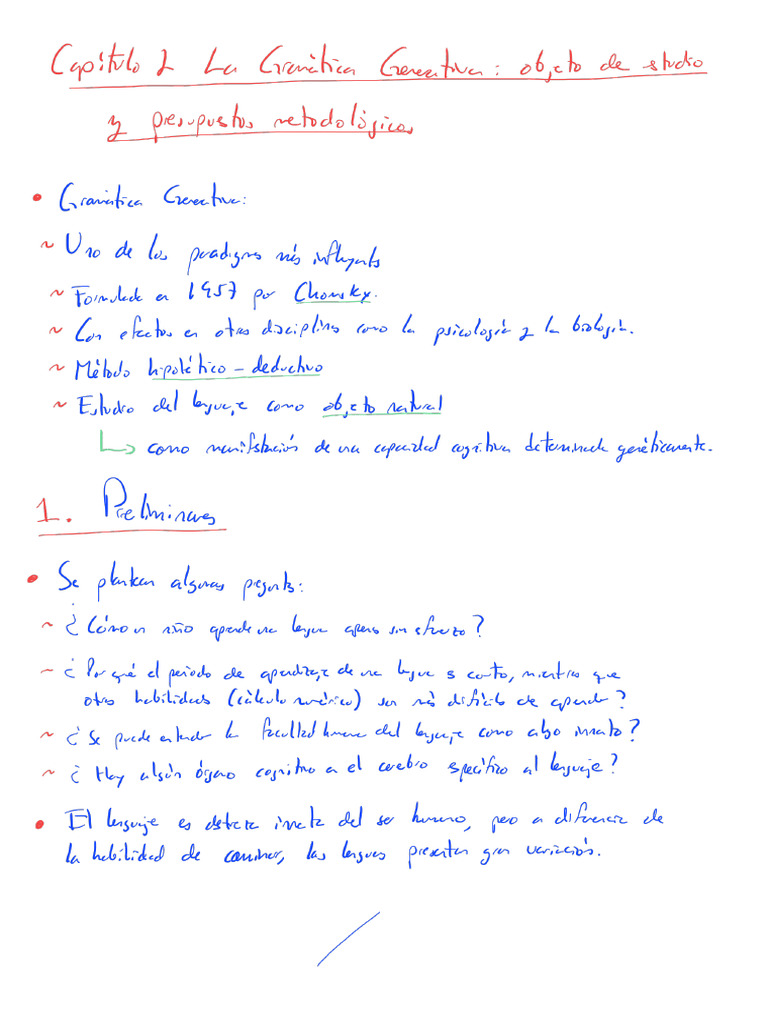 Capítulo 2 La Gramática Generativa: objeto de estudio
y presupuestos metodológicos
• Gramática Generativa:
~ Uno de los paradigmas más influyents
~ Formulada en 1957 por Chomsky.
~ Con efectos en otras disciplinas como la psicología y la biología.
~ Método hipotético-deductivo
~ Estudio del lenguaje como objeto natural
↳ como manifestación de una capacidad cognitiva determinada genéticamente.
1. Preliminares
• Se plantean algunas preguntas:
~ ¿Cómo un niño aprende una lengua apenas sin esfuerzo?
~ ¿Por qué el periodo de aprendizaje de una lengua es corto, mientras que
otras habilidades (cálculo numérico) son más difíciles de aprender?
~ ¿Se puede entender la facultad humana del lenguaje como algo innato?
~ ¿Hay algún órgano cognitivo en el cerebro específico al lenguaje?
• El lenguaje es destreza innata del ser humano, pero a diferencia de
la habilidad de caminar, las lenguas presentan gran variación.